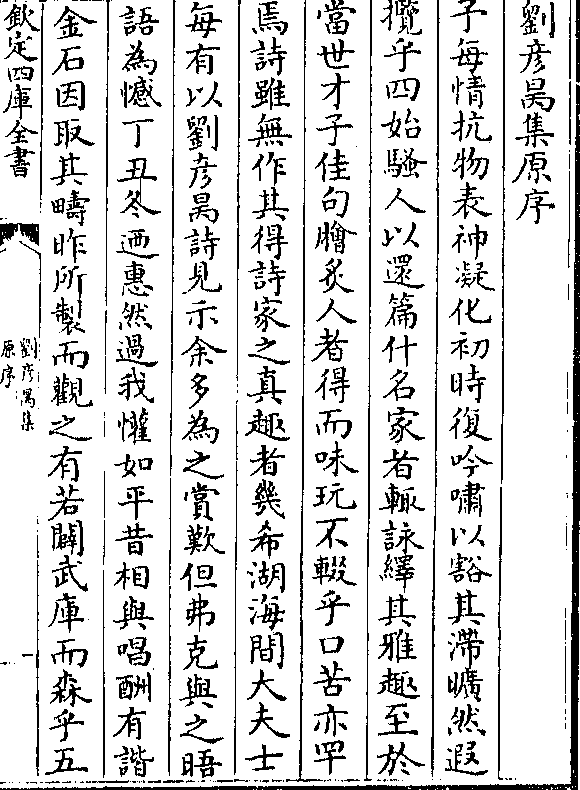 劉彥昺集原序
子每情抗物表神凝化初時復吟嘯以豁其滯曠然遐
攬乎四始騷人以還篇什名家者輒詠繹其雅趣至於
當世才子佳句膾炙人者得而味玩不輟乎口苦亦罕
焉詩雖無作其得詩家之真趣者幾希湖海間大夫士
每有以劉彥昺詩見示余多為之賞歎但弗克與之晤
語為憾丁丑冬迺惠然過我懽如平昔相與唱酬有諧
金石因取其疇昨所製而觀之有若闢武庫而森乎五
欽定四庫全書
劉彥昺集
原序
一